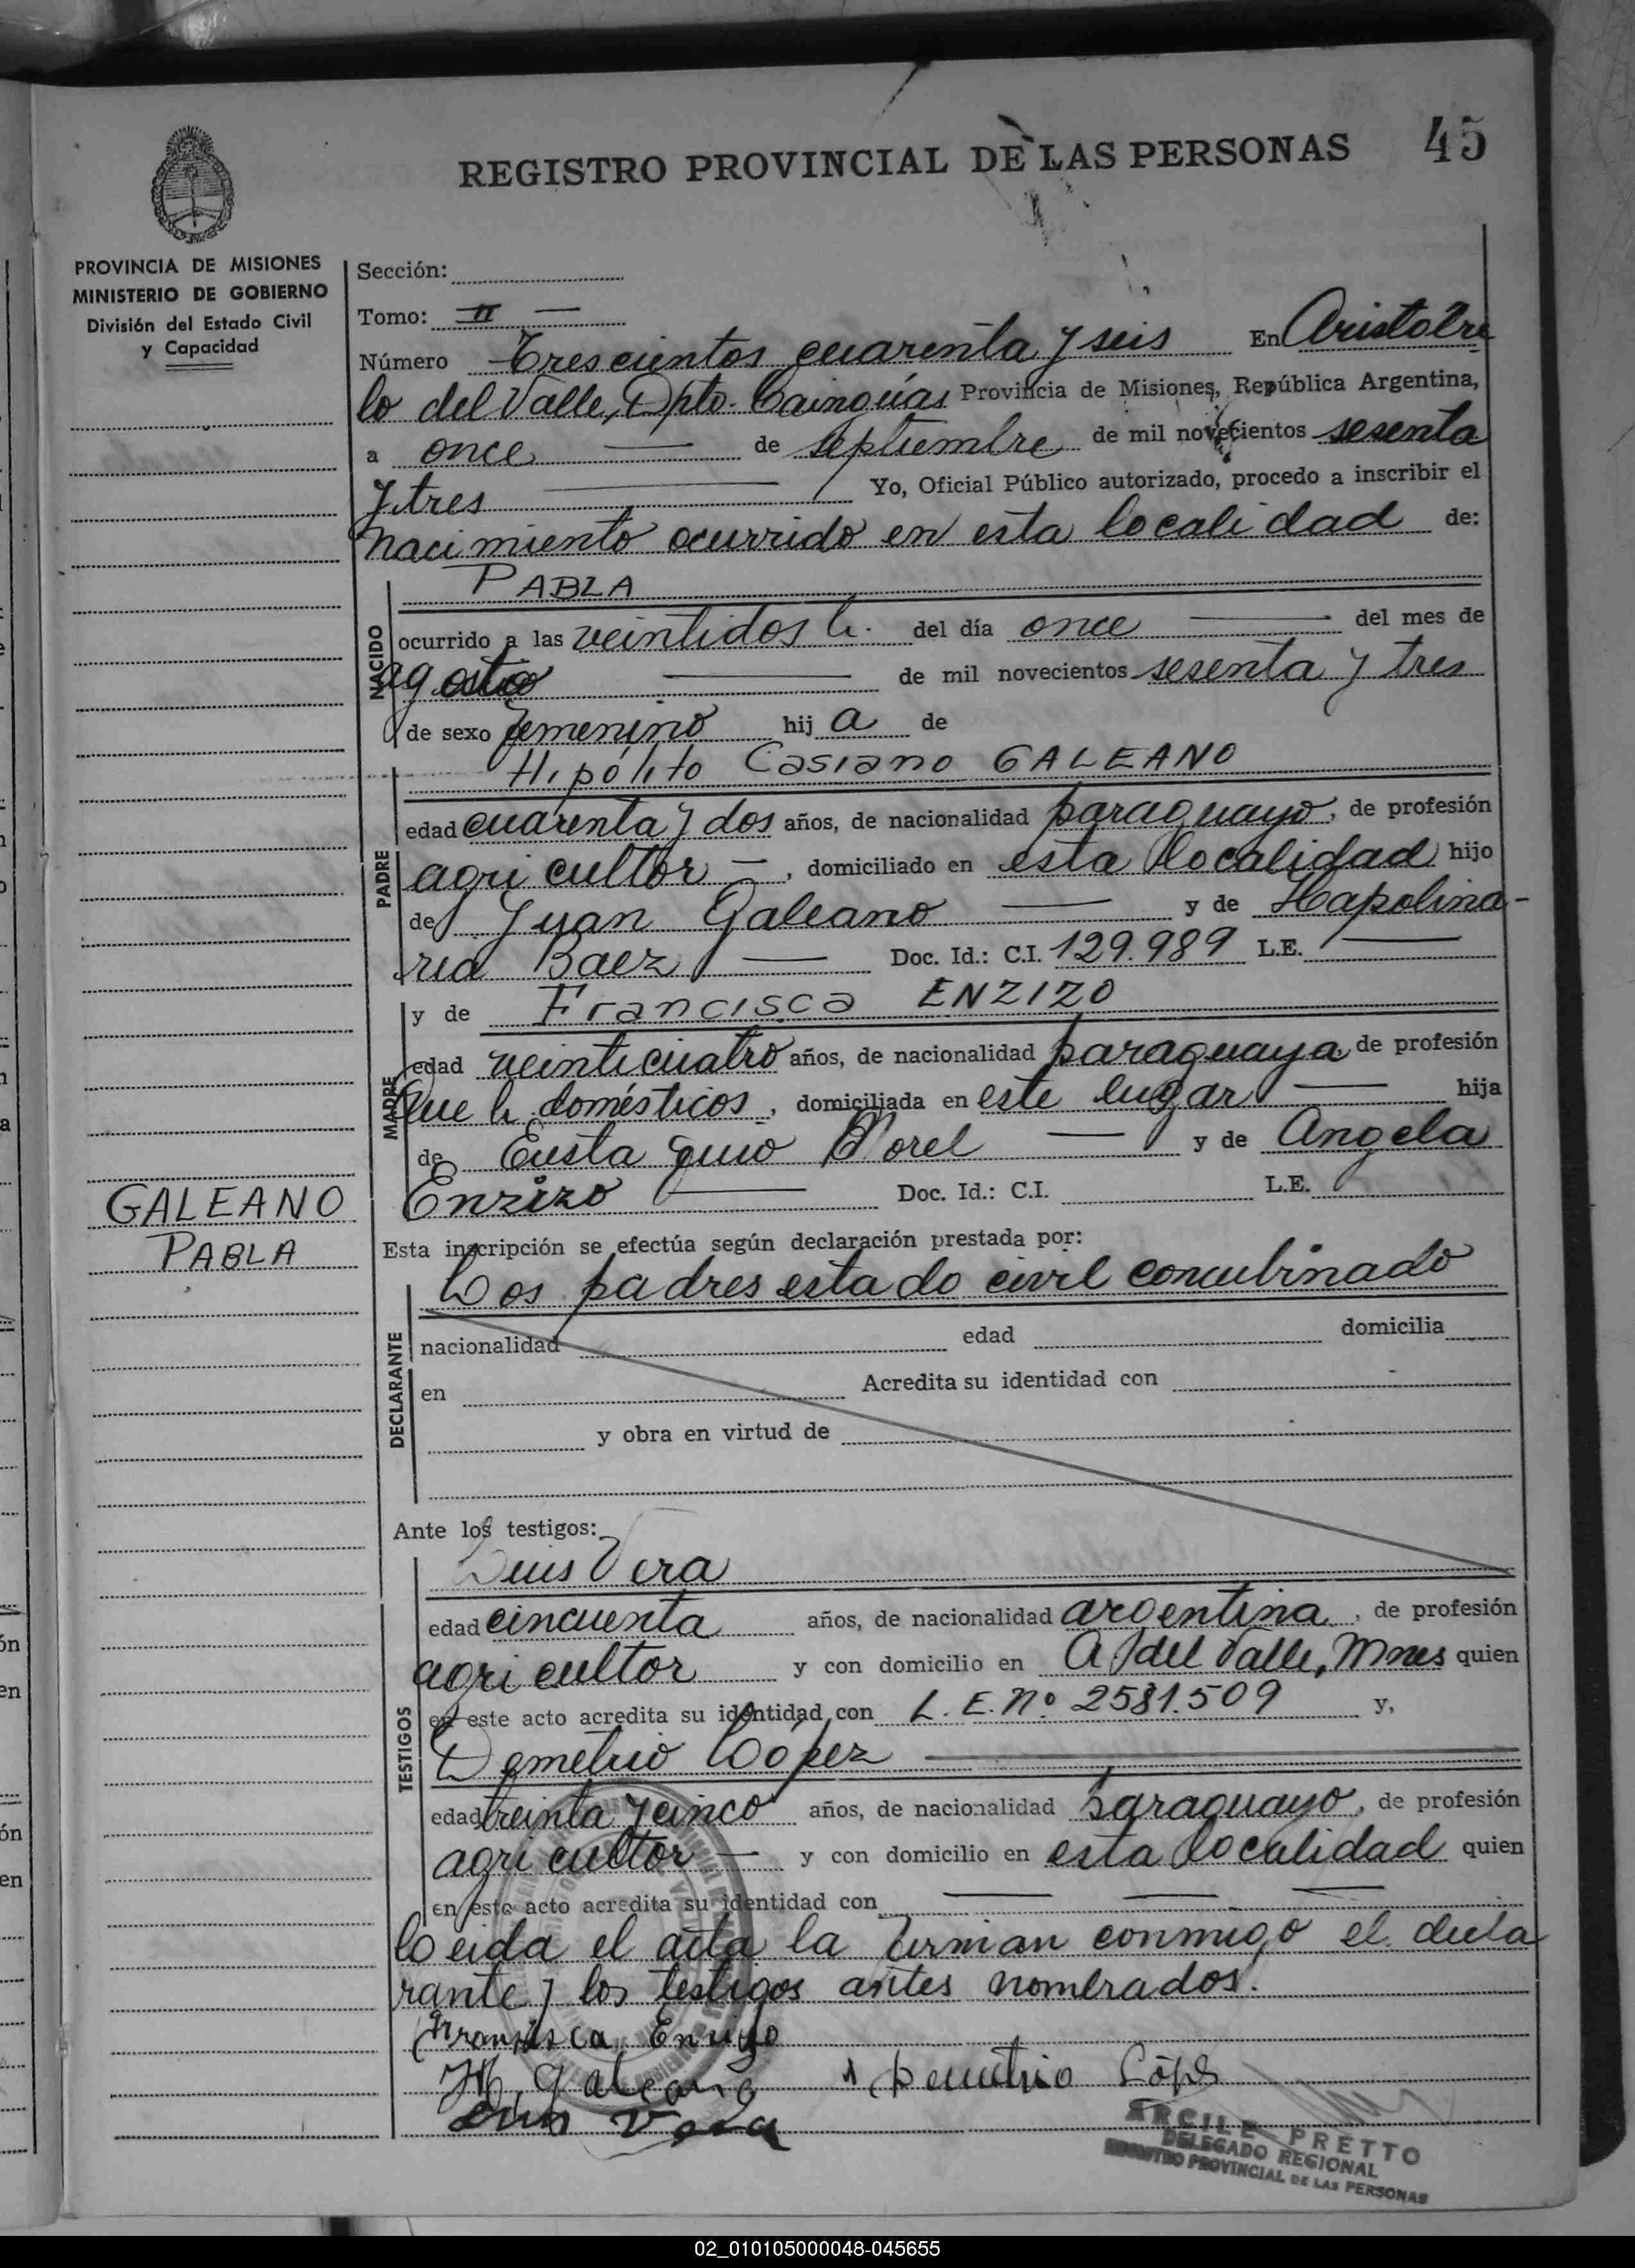 REGISTRO PROVINCIAL DE LAS PERSONAS 45
PROVINCIA DE MISIONES
MINISTERIO DE GOBIERNO
División del Estado Civil
y Capacidad
Sección:
Tomo: II —
Número Trescientos cuarenta y seis En Aristobu
lo del Valle, Dpto. Cainguás Provincia de Misiones, República Argentina,
a once — de septiembre de mil novecientos sesenta
y tres — Yo, Oficial Público autorizado, procedo a inscribir el
nacimiento ocurrido en esta localidad de:
NACIDO
PABLA
ocurrido a las veintidos h. del día once — del mes de
agosto — de mil novecientos sesenta y tres
de sexo femenino hij a de
PADRE
Hipólito Casiano GALEANO
edad cuarenta y dos años, de nacionalidad paraguayo, de profesión
agricultor —, domiciliado en esta localidad hijo
de Juan Galeano — y de Hapolina-
ria Baez — Doc. Id.: C.I. 129.989 L.E. —
MADRE
y de Francisca ENZIZO
edad veinticuatro años, de nacionalidad paraguaya de profesión
Que h. domésticos, domiciliada en este lugar — hija
de Eustaquio Morel — y de Angela
Enzizo — Doc. Id.: C.I. L.E.
GALEANO
PABLA
Esta inscripción se efectúa según declaración prestada por:
DECLARANTE
Los padres estado civil concubinado
nacionalidad edad domicilia
en Acredita su identidad con
y obra en virtud de
Ante los testigos:
TESTIGOS
Luis Vera
edad cincuenta años, de nacionalidad argentina, de profesión
agricultor y con domicilio en A. del Valle, Mnes quien
en este acto acredita su identidad con L.E. Nº 2581.509 y,
Demetrio López —
edad treinta y cinco años, de nacionalidad paraguayo, de profesión
agricultor — y con domicilio en esta localidad quien
en este acto acredita su identidad con — — —
Leida el acta la firman conmigo el decla
rante y los testigos antes nombrados.
Francisca Enzizo
H. Galeano Demetrio López
Luis Vera
ARCILE PRETTO
DELEGADO REGIONAL
REGISTRO PROVINCIAL DE LAS PERSONAS
02_010105000048-045655